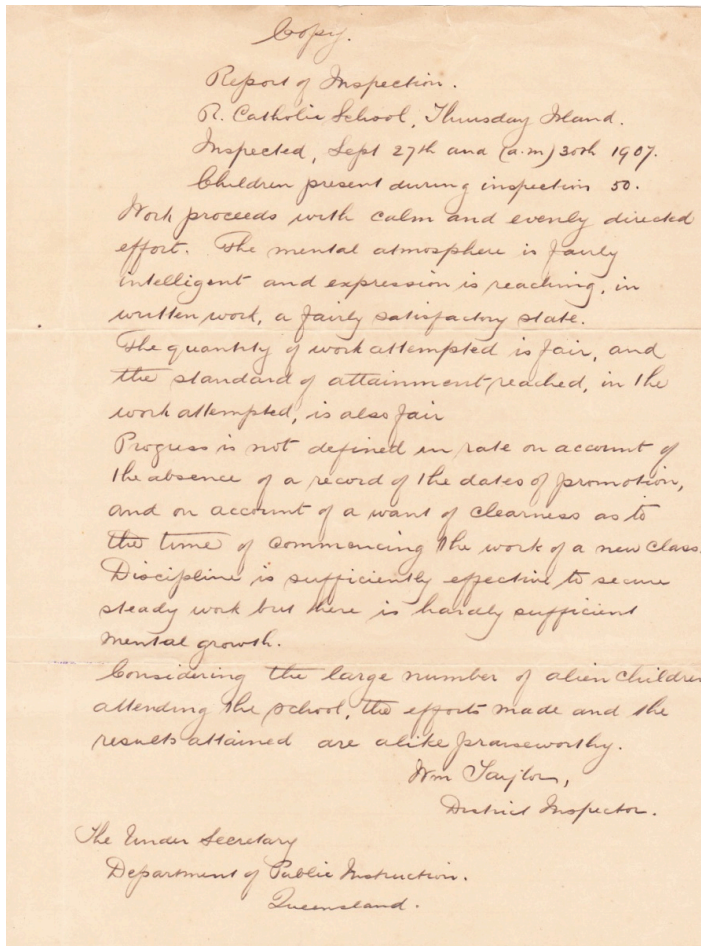 Copy.
Report of Inspection.
R. Catholic School, Thursday Island.
Inspected, Sept 27th and (a.m) 30th 1907.
Children present during inspection 50.
Work proceeds with calm and evenly directed
effort. The mental atmosphere is fairly
intelligent and expression is reaching, in
written work, a fairly satisfactory state.
The quantity of work attempted is fair, and
the standard of attainment reached, in the
work attempted, is also fair
Progress is not defined in rate on account of
the absence of a record of the dates of promotion,
and on account of a want of clearness as to
the time of commencing the work of a new class.
Discipline is sufficiently effective to secure
steady work but there is hardly sufficient
mental growth.
Considering the large number of alien children
attending the school, the efforts made and the
results attained are alike praiseworthy.
Wm Taylor,
District Inspector.
The Under Secretary
Department of Public Instruction.
Queensland.